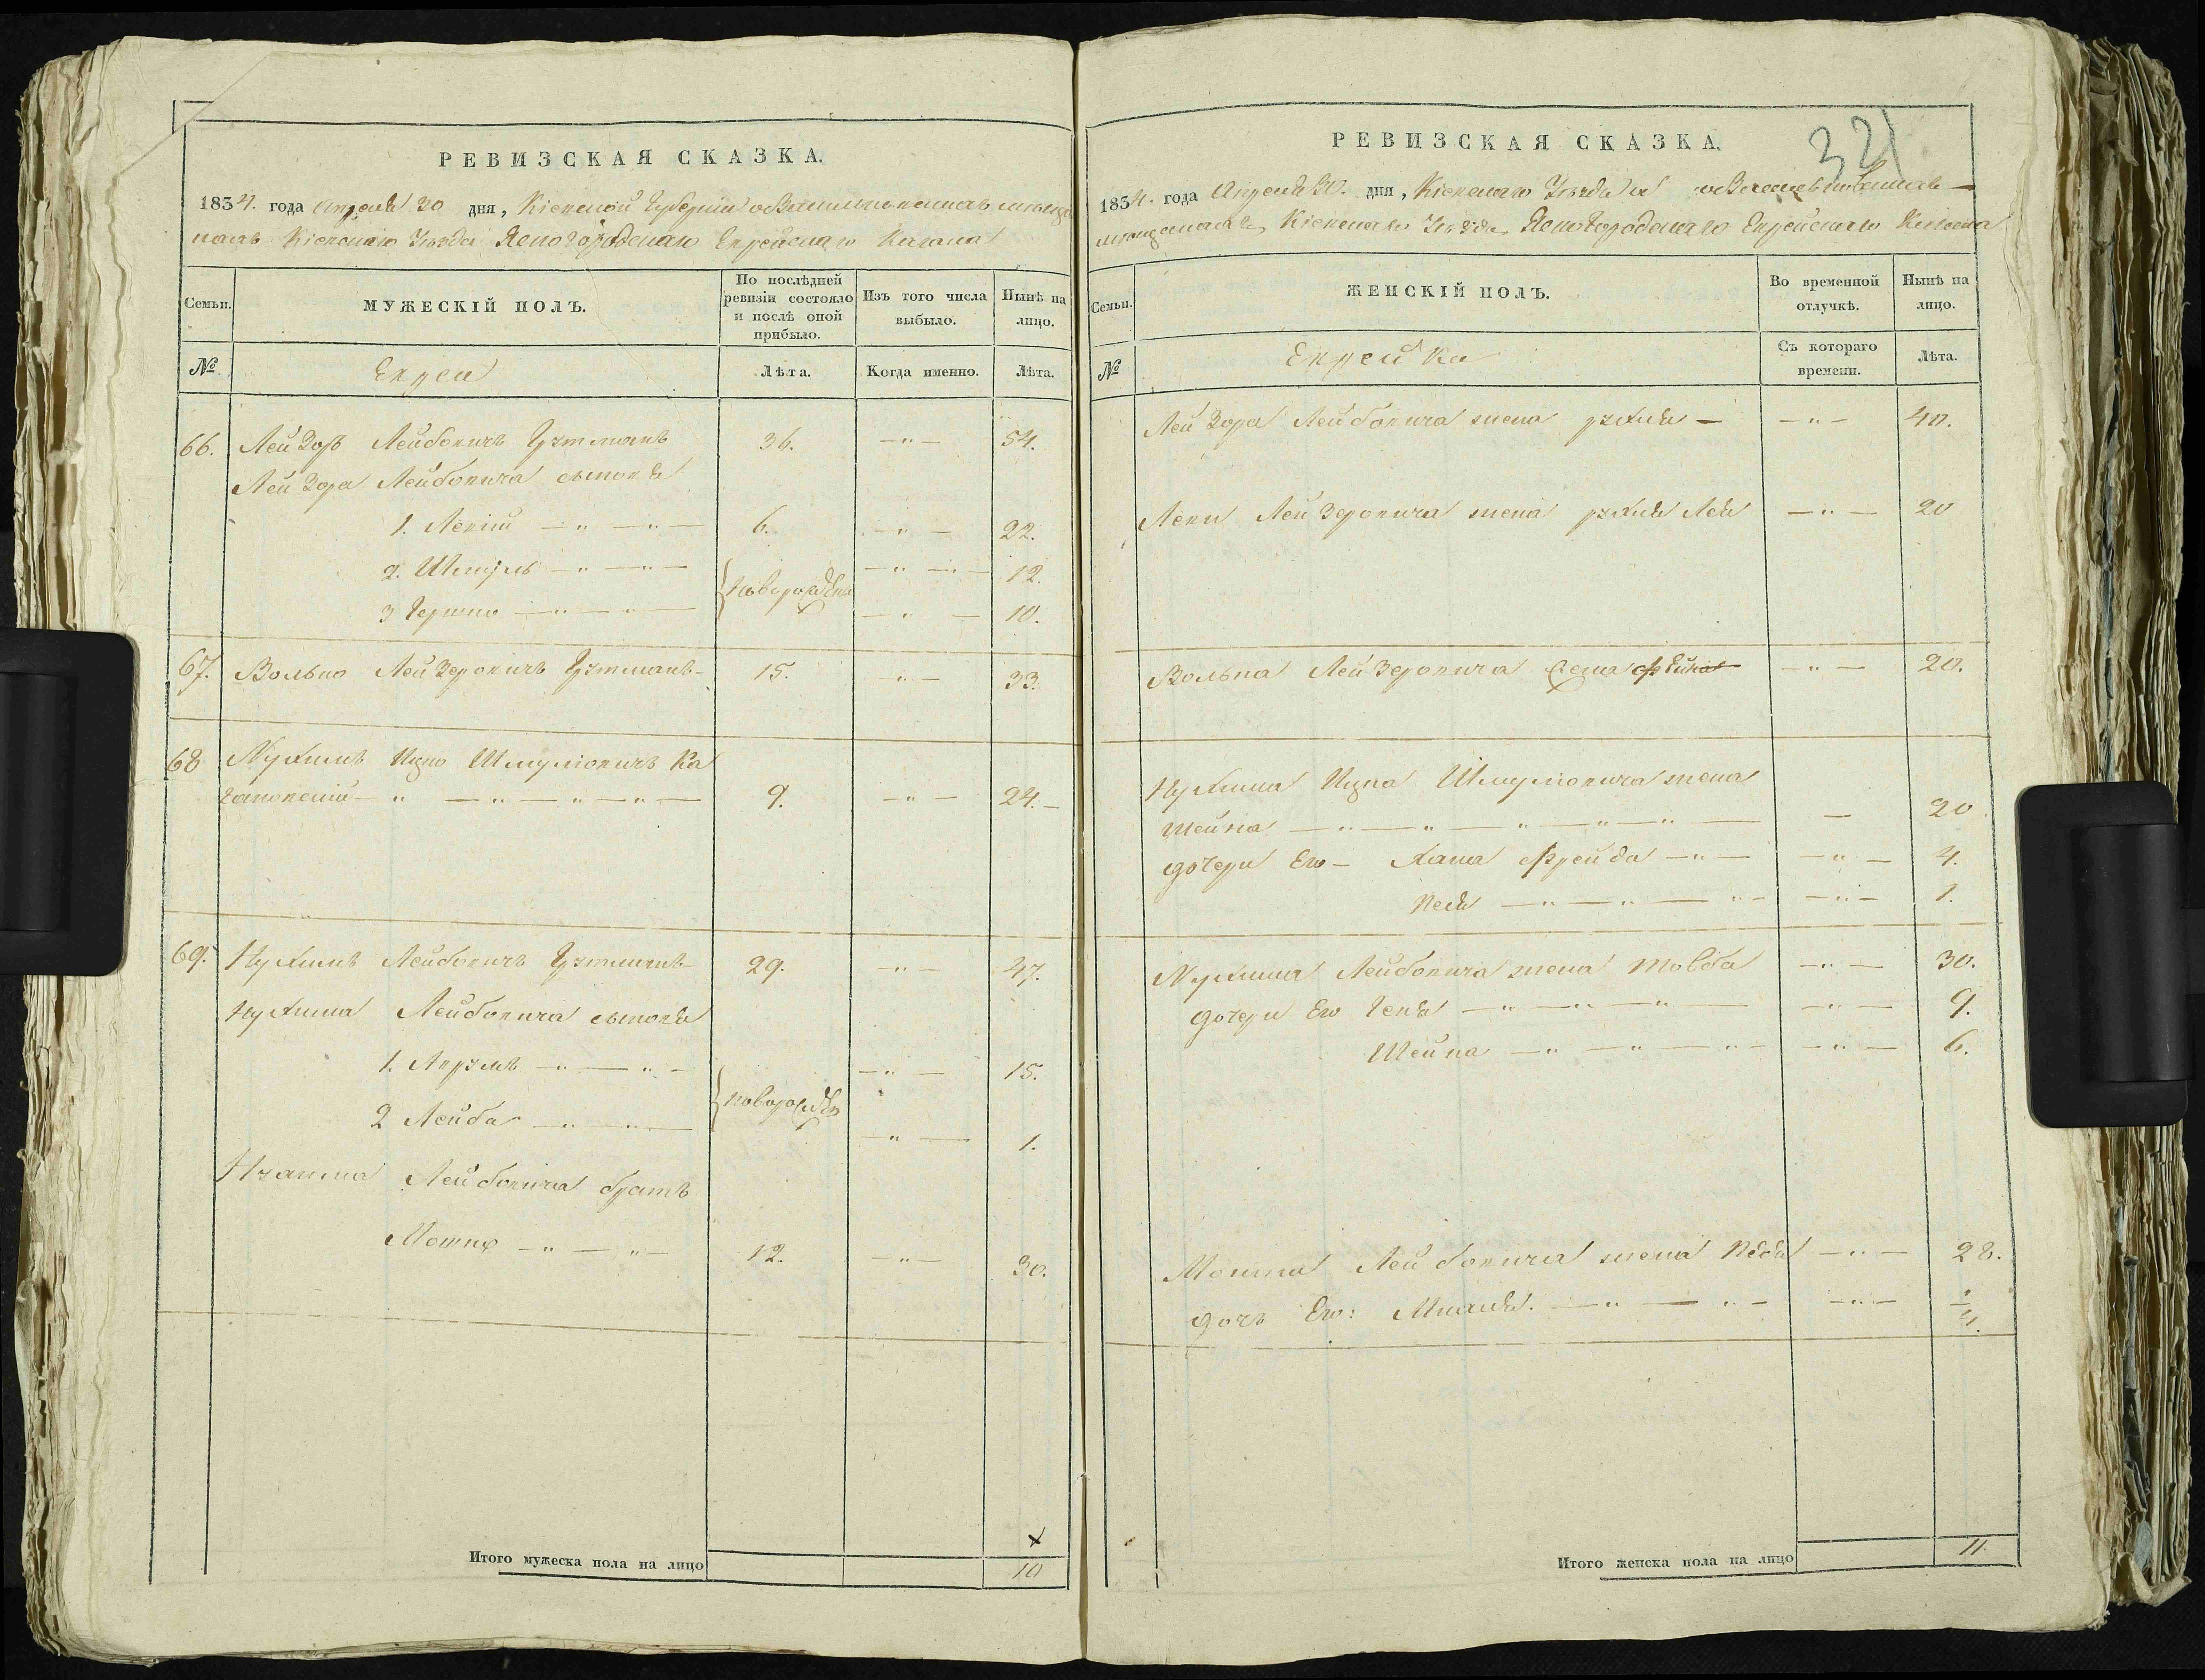 РЕВИЗСКАЯ СКАЗКА.
1834. года Апреля 30 дня, Кіевской Губерніи
Кіевскаго Уѣзда Ясногородскаго Еврейскаго Кагала
Семьи.
МУЖЕСКІЙ ПОЛЪ.
По послѣдней ревизіи состояло и послѣ оной прибыло.
Изъ того числа выбыло.
Нынѣ на лицо.
№
Евреи
Лѣта.
Когда именно.
Лѣта.
66. Лейзоръ Лейбовичъ Гутманъ 36. —"— 54.
Лейзора Лейбовича сыновья
1. Левій —"— —"— 6. —"— 22.
2. Шмуль —"— —"— —"— 12.
Новорожден
3 Гершко —"— —"— —"— 10.
67. Волько Лейзеровичъ Гутманъ— 15. —"— 33.
68 Нухимъ Ицко Шмуліовичъ Ка
гановскій—"—"—"—"— 9. —"— 24.—
69. Нухимъ Лейбовичъ Гутманъ— 29. —"— 47.
Нухима Лейбовича сыновья
1. Аврумъ —"— —"— —"— 15.
новорожден
2 Лейба —"— —"— —"— 1.
Лейбовича братъ
Мошко —"— —"— 12. —"— 30.
Итого мужеска пола на лицо
10
РЕВИЗСКАЯ СКАЗКА.
321
1834. года Апреля 30. дня, Кіевскаго Уѣзда
Кіевскаго Уѣзда, Ясногородскаго Еврейскаго Кагала
Семьи.
ЖЕНСКІЙ ПОЛЪ.
Во временной отлучкѣ.
Нынѣ на лицо.
№
Еврейка
Съ котораго времени.
Лѣта.
Лейзора Лейбовича жена Рухля — —"— 40.
Левия Лейзеровича жена Рухля Лея —"— 20
Волька Лейзеровича жена Фейга —"— 20.
Нухима Ицка Шмуліовича жена
Шейна —"—"—"—"—"— — 20.
дочери Его — Хана Фрейда —"— —"— 4.
Песя —"—"— "— —"— 1.
Нухима Лейбовича жена Товба —"— 30.
дочери Его Геня —"—"—"— —"— 9.
Шейна —"—"—"— —"— 6.
Мошка Лейбовича жена Песя —"— 28.
дочь Его: —"— "— —"—
Итого женска пола на лицо
11.